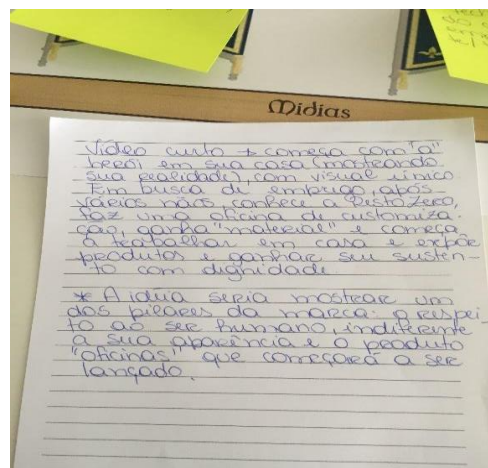 Mídias
Vídeo curto → começa com "a"
herói em sua casa (mostrando
sua realidade), com visual único
Em busca de emprego, após
vários nãos, conhece a RestoZero,
faz uma oficina de customiza-
ção, ganha "material" e começa
a trabalhar em casa e expõe
produtos e ganhar seu susten-
to com dignidade
* A idéia seria mostrar um
dos pilares da marca: o respei-
to ao ser humano, indiferente
a sua aparência e o produto
"oficinas" que começará a ser
lançado.